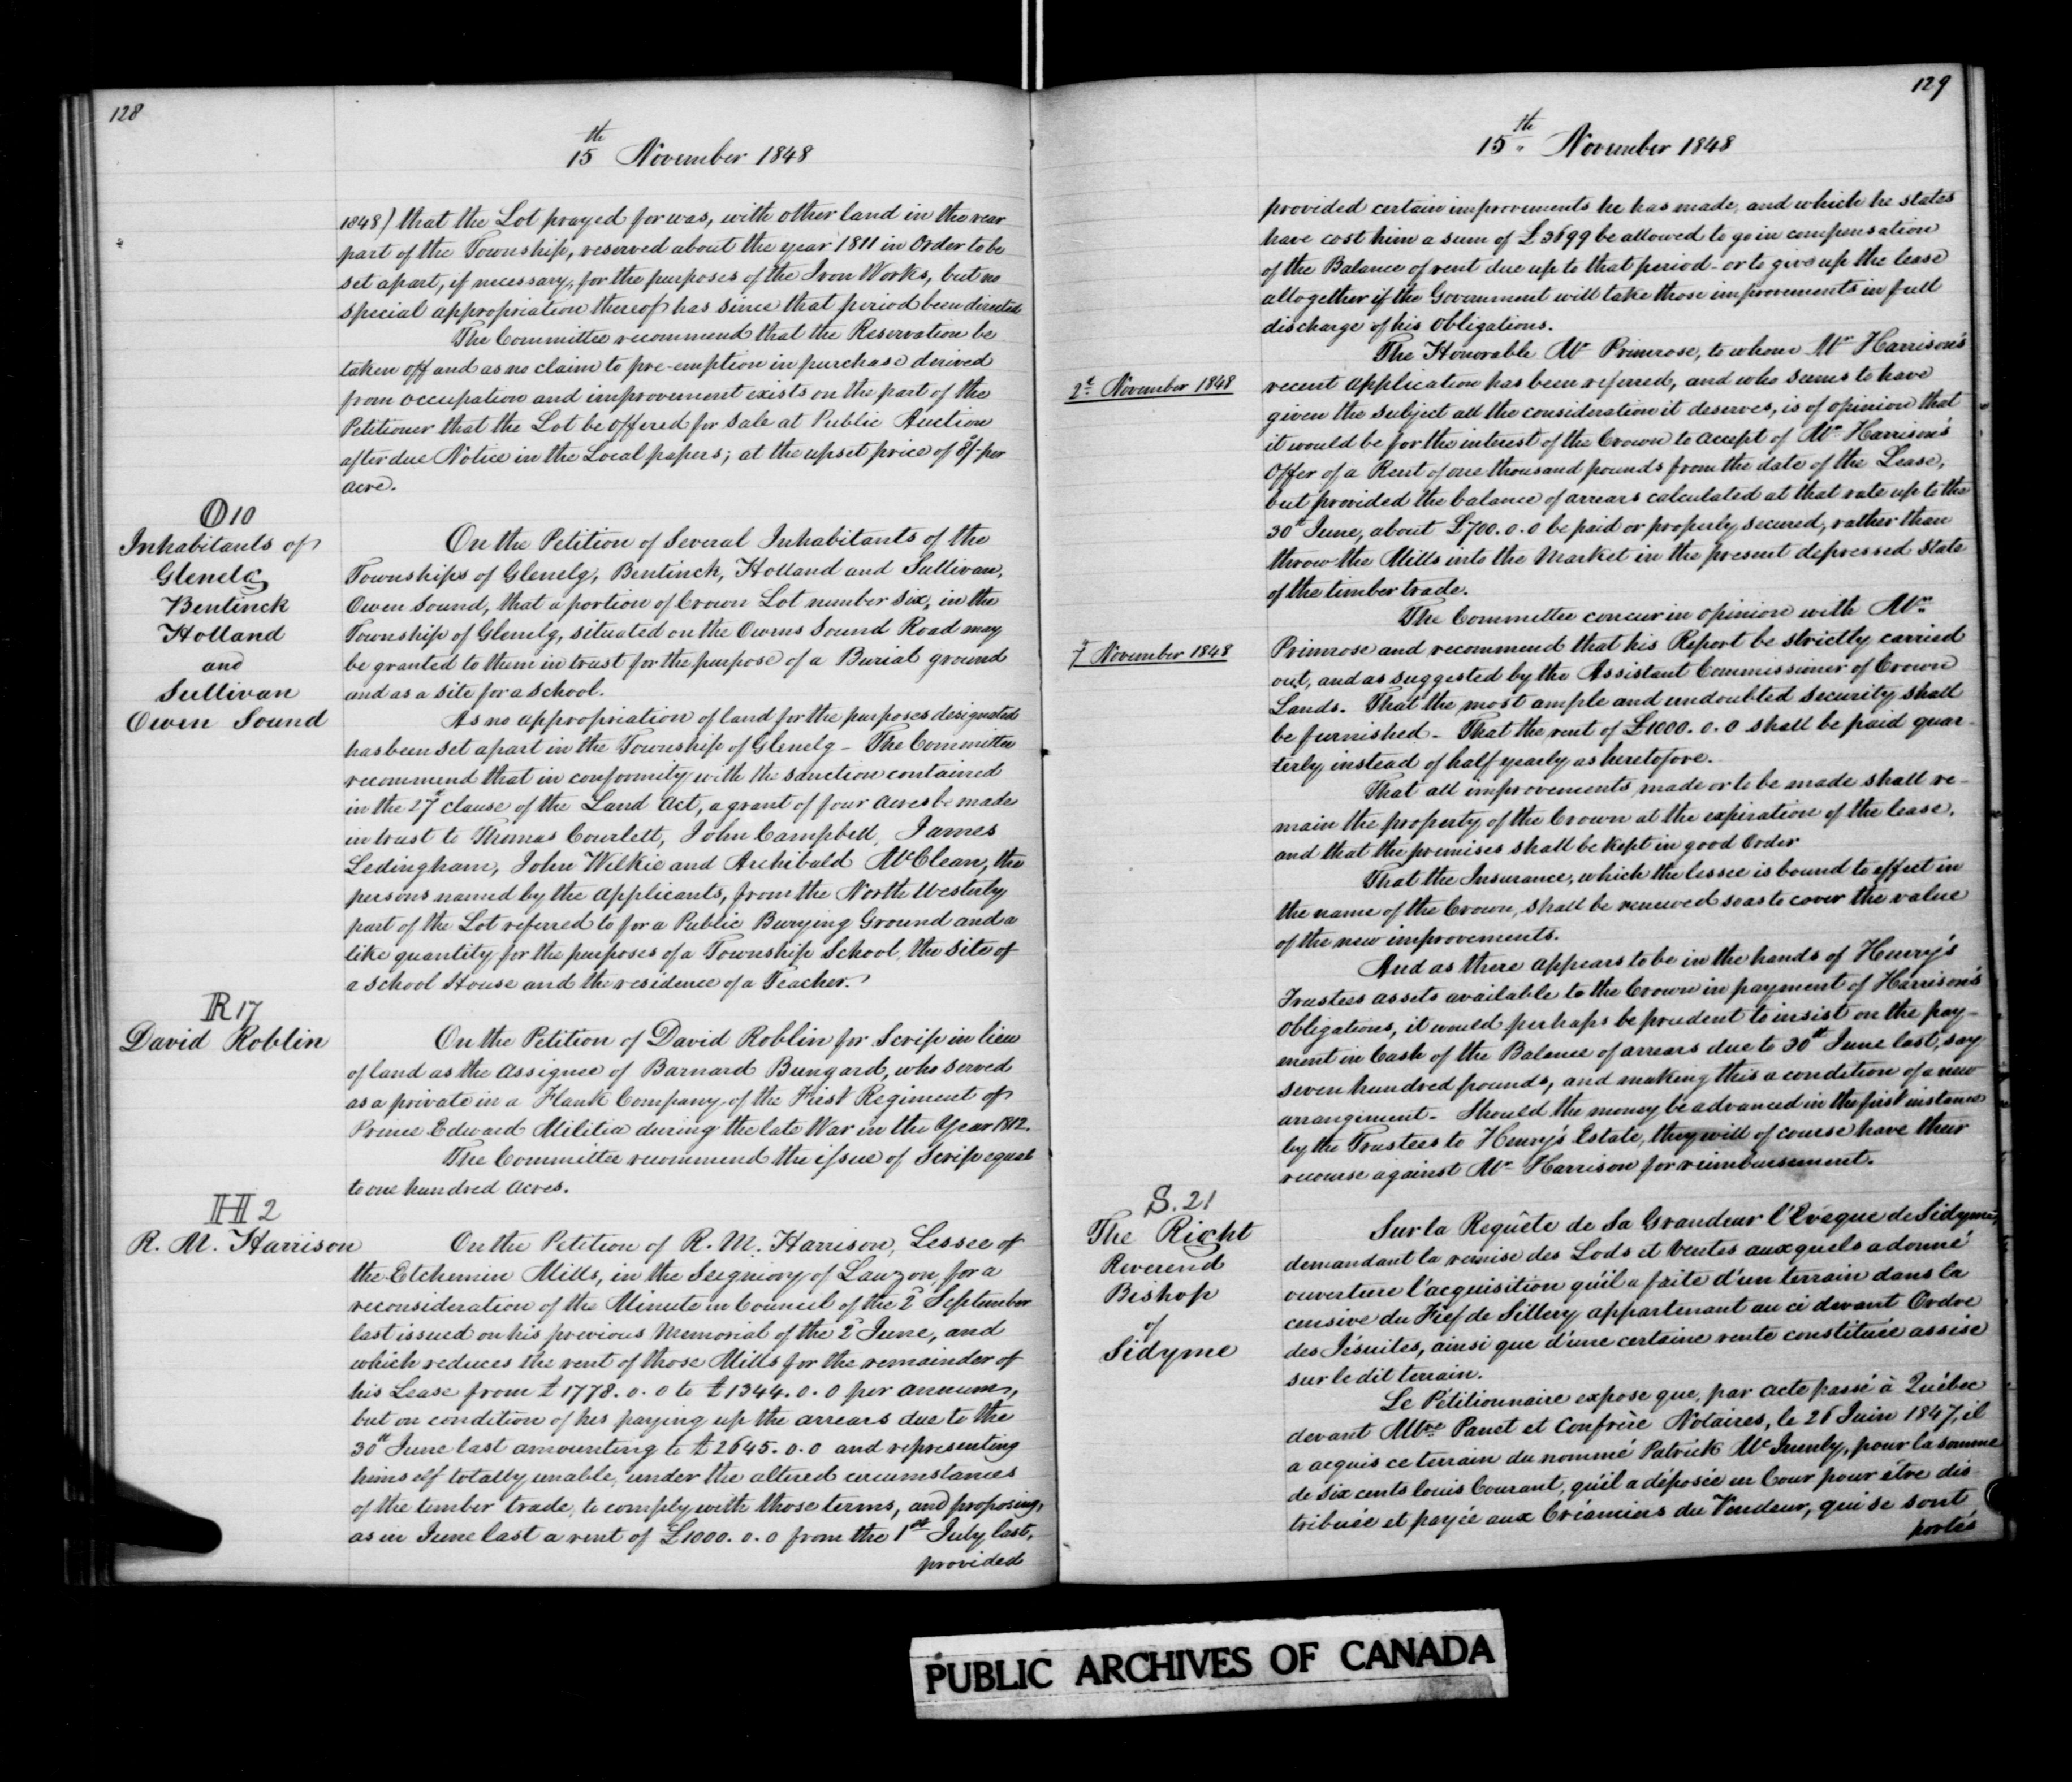 128
15th November 1848
1848) that the Lot prayed for was, with other land in the rear
part of the Township, reserved about the year 1811 in Order to be
set apart, if necessary, for the purposes of the Iron Works, but no
special appropriation thereof has since that period been directed
The Committee recommend that the Reservation be
taken off and as no claim to pre-emption in purchase derived
from occupation and improvement exists on the part of the
Petitioner that the Lot be offered for sale at Public Auction
after due Notice in the Local papers; at the upset price of 8/- per
acre.
O 10
Inhabitants of
Glenelg
Bentinck
Holland
and
Sullivan
Owen Sound
On the Petition of Several Inhabitants of the
Townships of Glenelg, Bentinck, Holland and Sullivan,
Owen Sound, that a portion of Crown Lot number six, in the
Township of Glenelg, situated on the Owens Sound Road may
be granted to them in trust for the purpose of a Burial ground
and as a site for a school.
As no appropriation of land for the purposes designated
has been set apart in the Township of Glenelg - The Committee
recommend that in conformity with the sanction contained
in the 27th clause of the Land Act, a grant of four acres be made
in trust to Thomas Courlett, John Campbell, James
Ledingham, John Wilkie and Archibald McClean, the
persons named by the applicants, from the North Westerly
part of the Lot referred to for a Public Burying Ground and a
like quantity for the purposes of a Township School, the site of
a School House and the residence of a Teacher.
R 17
David Roblin
On the Petition of David Roblin for Scrip in lieu
of land as the assignee of Barnard Bungard, who served
as a private in a Flank Company of the First Regiment of
Prince Edward Militia during the late War in the Year 1812.
The Committee recommend the issue of Scrip equal
to one hundred acres.
H 2
R. M. Harrison
On the Petition of R. M. Harrison, Lessee of
the Etchemin Mills, in the Seigniory of Lauzon, for a
reconsideration of the Minute in Council of the 2d September
last issued on his previous Memorial of the 2d June, and
which reduces the rent of those Mills for the remainder of
his Lease from £1778. 0. 0 to £1344. 0. 0 per annum,
but on condition of his paying up the arrears due to the
30th June last amounting to £2645. 0. 0 and representing
himself totally unable, under the altered circumstances
of the timber trade, to comply with those terms, and proposing,
as in June last a rent of £1000. 0. 0 from the 1st July last,
provided
129
15th November 1848
provided certain improvements he has made, and which he states
have cost him a sum of £3699 be allowed to go in compensation
of the Balance of rent due up to that period - or to give up the lease
altogether if the Government will take those improvements in full
discharge of his obligations.
The Honorable Mr Primrose, to whom Mr Harrison's
2d November 1848
recent application has been referred, and who seems to have
given the subject all the consideration it deserves, is of opinion that
it would be for the interest of the Crown to accept of Mr Harrison's
Offer of a Rent of one thousand pounds from the date of the Lease,
but provided the balance of arrears calculated at that rate up to the
30th June, about £700. 0. 0 be paid or properly secured, rather than
throw the Mills into the Market in the present depressed state
of the timber trade.
The Committee concur in opinion with Mr
7 November 1848
Primrose and recommend that his Report be strictly carried
out, and as suggested by the Assistant Commissioner of Crown
Lands. That the most ample and undoubted security shall
be furnished - That the rent of £1000. 0. 0 shall be paid quar-
terly instead of half yearly as heretofore.
That all improvements made or to be made shall re-
main the property of the Crown at the expiration of the lease,
and that the premises shall be kept in good Order
That the Insurance, which the lessee is bound to effect in
the name of the Crown, shall be renewed so as to cover the value
of the new improvements.
And as there appears to be in the hands of Henry's
Trustees assets available to the Crown in payment of Harrison's
Obligations, it would perhaps be prudent to insist on the pay-
ment in Cash of the Balance of arrears due to 30th June last, say
seven hundred pounds, and making this a condition of a new
arrangement. Should the money be advanced in the first instance
by the Trustees to Henry's Estate, they will of course have their
recourse against Mr Harrison for reimbursement.
S. 21
The Right
Reverend
Bishop
of
Sidyme
Sur la Requête de Sa Grandeur l'Evêque de Sidyme,
demandant la remise des Lods et Ventes auxquels a donné
ouverture l'acquisition qu'il a faite d'un terrain dans la
censive du Fief de Sillery appartenant au ci devant Ordre
des Jésuites, ainsi que d'une certaine rente constituée assise
sur le dit terrain.
Le Pétitionnaire expose que, par acte passé à Québec
devant Mtre Panet et Confrère Notaires, le 26 Juin 1847, il
a acquis ce terrain du nommé Patrick pour la somme
de six cents louis Courant, qu'il a déposée en Cour pour être dis-
tribuée et payée aux Créanciers du Vendeur, qui se sont
portés
PUBLIC ARCHIVES OF CANADA